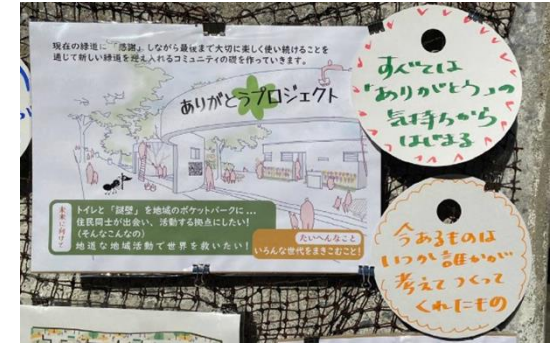 現在の緑道に「感謝」しながら最後まで大切に楽しく使い続けることを
通じて新しい緑道を迎え入れるコミュニティの礎を作っていきます。
ありがとうプロジェクト
未来に向けて
トイレと「謎壁」を地域のポケットパークに…
住民同士が出会い、活動する拠点にしたい!
(そんなこんなの)
地道な地域活動で世界を救いたい!
たいへんなこと
いろんな世代をまきこむこと!
すべては
「ありがとう」の
気持ちから
はじまる
今あるものは
いつか誰かが
考えてつくって
くれたもの